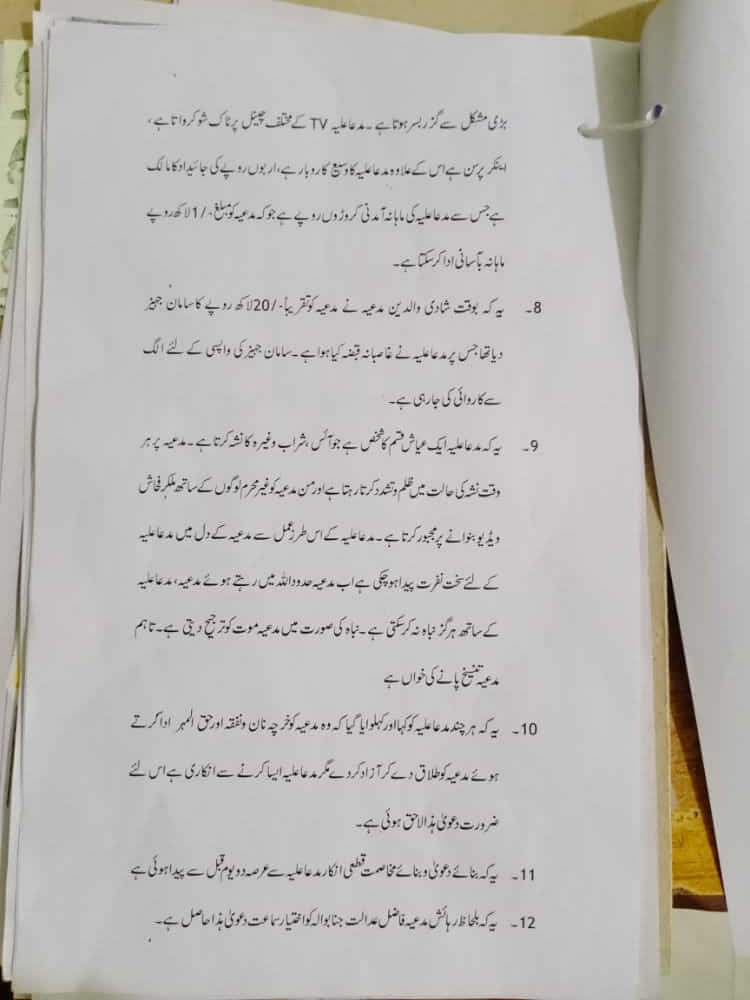 بڑی مشکل سے گزر بسر ہوتا ہے۔ مدعا علیہ TV کے مختلف چینل پر ٹاک شو کرواتا ہے،
اینکر پرسن ہے اس کے علاوہ مدعا علیہ کا وسیع کاروبار ہے، اربوں روپے کی جائیداد کا مالک
ہے جس سے مدعا علیہ کی ماہانہ آمدنی کروڑوں روپے ہے جو کہ مدعیہ کو مبلغ -/1 لاکھ روپے
ماہانہ بآسانی ادا کر سکتا ہے۔
8۔ یہ کہ بوقت شادی والدین مدعیہ نے مدعیہ کو تقریباً -/20 لاکھ روپے کا سامان جہیز
دیا تھا جس پر مدعا علیہ نے غاصبانہ قبضہ کیا ہوا ہے۔ سامان جہیز کی واپسی کے لئے الگ
سے کاروائی کی جا رہی ہے۔
9۔ یہ کہ مدعا علیہ ایک عیاش قسم کا شخص ہے جو آئس، شراب وغیرہ کا نشہ کرتا ہے۔ مدعیہ پر ہر
وقت نشہ کی حالت میں ظلم و تشدد کرتا رہتا ہے اور من مدعیہ کو غیر محرم لوگوں کے ساتھ ملکر فحاش
ویڈیو بنوانے پر مجبور کرتا ہے۔ مدعا علیہ کے اس طرز عمل سے مدعیہ کے دل میں مدعا علیہ
کے لئے سخت نفرت پیدا ہو چکی ہے اب مدعیہ حدود اللہ میں رہتے ہوئے مدعیہ، مدعا علیہ
کے ساتھ ہرگز نباہ نہ کر سکتی ہے۔ نباہ کی صورت میں مدعیہ موت کو ترجیح دیتی ہے۔ تاہم
مدعیہ تنسیخ پانے کی خواں ہے
10۔ یہ کہ ہر چند مدعا علیہ کو کہا اور کہلوایا گیا کہ وہ مدعیہ کو خرچہ نان و نفقہ اور حق المہر ادا کرتے
ہوئے مدعیہ کو طلاق دے کر آزاد کر دے مگر مدعا علیہ ایسا کرنے سے انکاری ہے اس لئے
ضرورت دعویٰ ہذا لاحق ہوئی ہے۔
11۔ یہ کہ بنائے دعویٰ و بنائے مخاصمت قطعی انکار مدعا علیہ سے عرصہ دو یوم قبل سے پیدا ہوئی ہے
12۔ یہ کہ بلحاظ رہائش مدعیہ فاضل عدالت جناب والہ کو اختیار سماعت دعویٰ ہذا حاصل ہے۔